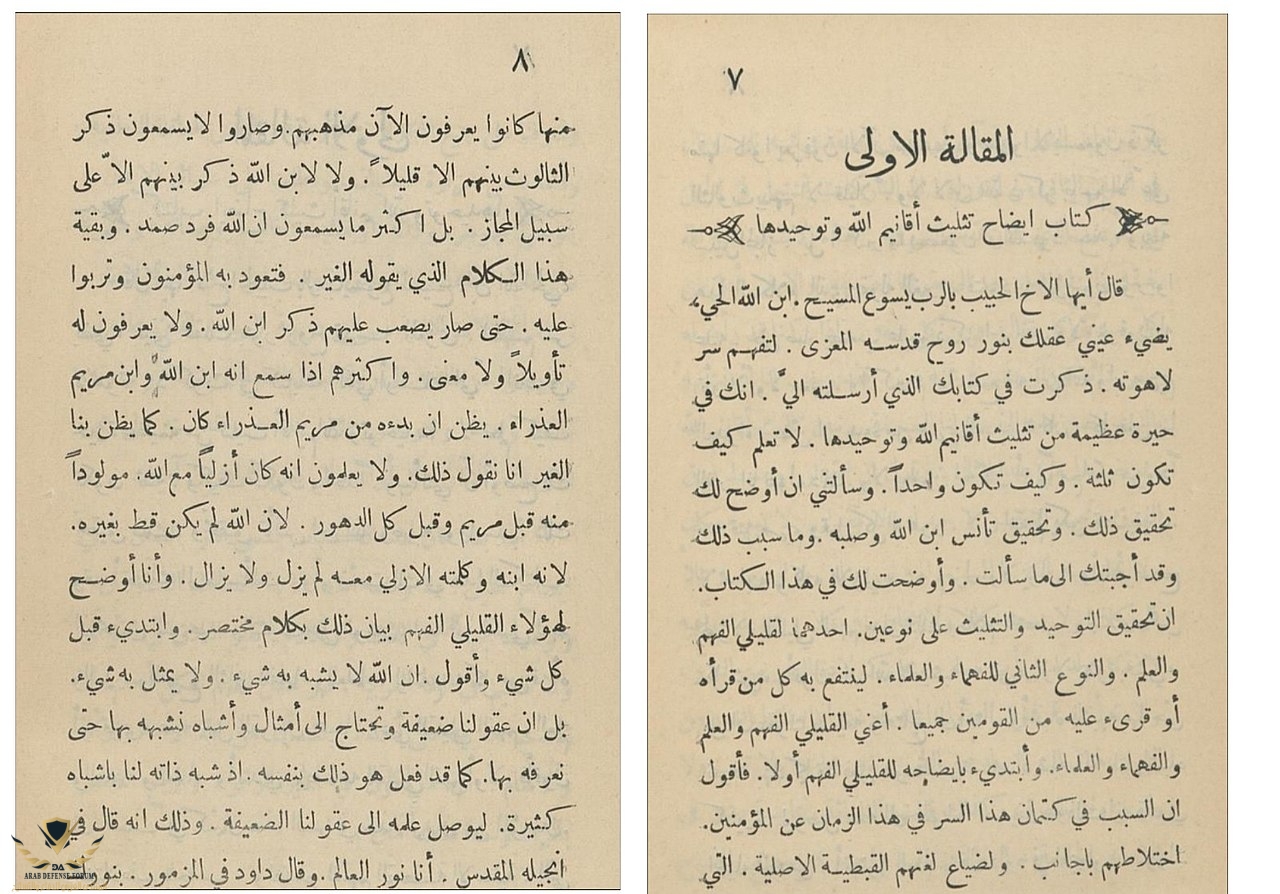 ٧
المقالة الاولى
كتاب ايضاح تثليث أقانيم الله وتوحيدها
قال أيها الاخ الحبيب بالرب يسوع المسيح . ابن الله الحيء
يضيء عيني عقلك بنور روح قدسه المعزى . لتفهم سر
لاهوته . ذكرت في كتابك الذي أرسلته اليَّ . انك في
حيرة عظيمة من تثليث أقانيم الله وتوحيدها . لا تعلم كيف
تكون ثلثة . وكيف تكون واحداً . وسألتني ان أوضح لك
تحقيق ذلك . وتحقيق تأنس ابن الله وصلبه . وما سبب ذلك
وقد أجبتك الى ما سألت . وأوضحت لك في هذا الكتاب.
ان تحقيق التوحيد والتثليث على نوعين. احدهما لقليلي الفهم
والعلم . والنوع الثاني للفهماء والعلماء . لينتفع به كل من قرأه
أو قرىء عليه من القومين جميعا . أعني القليلي الفهم والعلم
والفهماء والعلماء. وأبتديء بايضاحه للقليلي الفهم أولا. فأقول
ان السبب في كتمان هذا السر في هذا الزمان عن المؤمنين.
اختلاطهم باجانب . ولضياع لغتهم القبطية الاصلية . التي
٨
منها كانوا يعرفون الآن مذهبهم. وصاروا لا يسمعون ذكر
الثالوث بينهم الا قليلاً . ولا لابن الله ذكر بينهم الاّ على
سبيل المجاز . بل اكثر ما يسمعون ان الله فرد صمد . وبقية
هذا الكلام الذي يقوله الغير . فتعود به المؤمنون وتربوا
عليه . حتى صار يصعب عليهم ذكر ابن الله . ولا يعرفون له
تأويلاً ولا معنى . واكثرهم اذا سمع انه ابن الله وابن مريم
العذراء . يظن ان بدءه من مريم العذراء كان . كما يظن بنا
الغير انا نقول ذلك. ولا يعلمون انه كان أزلياً مع الله. مولوداً
منه قبل مريم وقبل كل الدهور . لان الله لم يكن قط بغيره.
لانه ابنه وكلمته الازلي معه لم يزل ولا يزال . وأنا أوضح
لهؤلاء القليلي الفهم بيان ذلك بكلام مختصر . وابتديء قبل
كل شيء وأقول . ان الله لا يشبه به شيء . ولا يمثل به شيء.
بل ان عقولنا ضعيفة وتحتاج الى أمثال وأشباه نشبهه بها حتى
نعرفه بها. كما قد فعل هو ذلك بنفسه . اذ شبه ذاته لنا باشباه
كثيرة. ليوصل علمه الى عقولنا الضعيفة . وذلك انه قال في
انجيله المقدس . أنا نور العالم . وقال داود في المزمور . بنورك
DA
ARAB DEFENSE FORUM